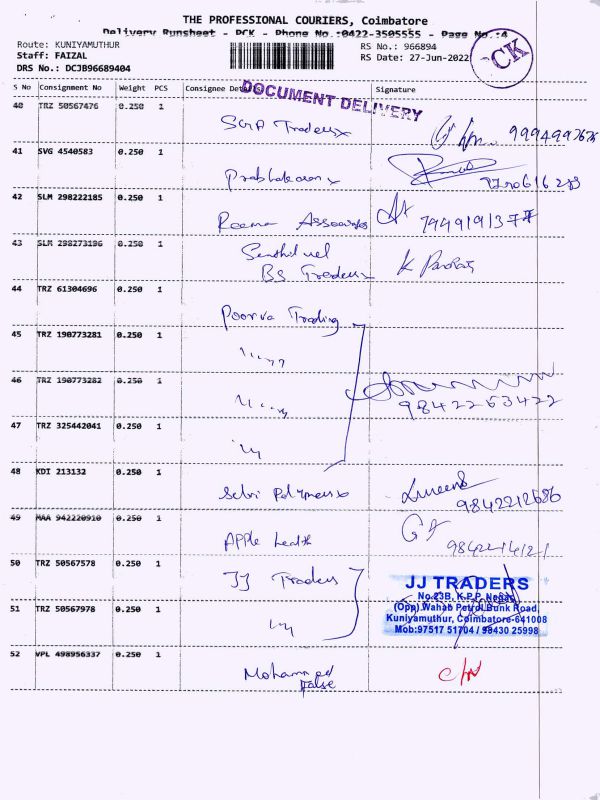 THE PROFESSIONAL COURIERS, Coimbatore
Delivery Runsheet - DCK - Phone No.:0422-3505555 - Page No.:4
Route: KUNIYAMUTHUR
Staff: FAIZAL
DRS No.: DCJB96689404
RS No.: 966894
RS Date: 27-Jun-2022
CK
S No Consignment No Weight PCS Consignee Details Signature
DOCUMENT DELIVERY
40 TRZ 50567476 0.250 1 Traders
41 SVG 4540583 0.250 1 Prabhakaran
42 SLM 298222185 0.250 1 Reema Associates
43 SLM 298273196 0.250 1 Senthil vel
BS Traders K
44 TRZ 61304696 0.250 1 Poorva Trading
45 TRZ 190773281 0.250 1
46 TRZ 190773282 0.250 1 9842263422
47 TRZ 325442041 0.250 1
48 KDI 213132 0.250 1 Selvi Polymers
9842212686
49 MAA 942220910 0.250 1 Apple health
50 TRZ 50567578 0.250 1 JJ Traders
JJ TRADERS
No.23B, K.P.P. Nagar,
(Opp) Wahab Petrol Bunk Road,
Kuniyamuthur, Coimbatore-641008
Mob:97517 51704 / 98430 25998
51 TRZ 50567978 0.250 1
52 VPL 498956337 0.250 1 Mohammed